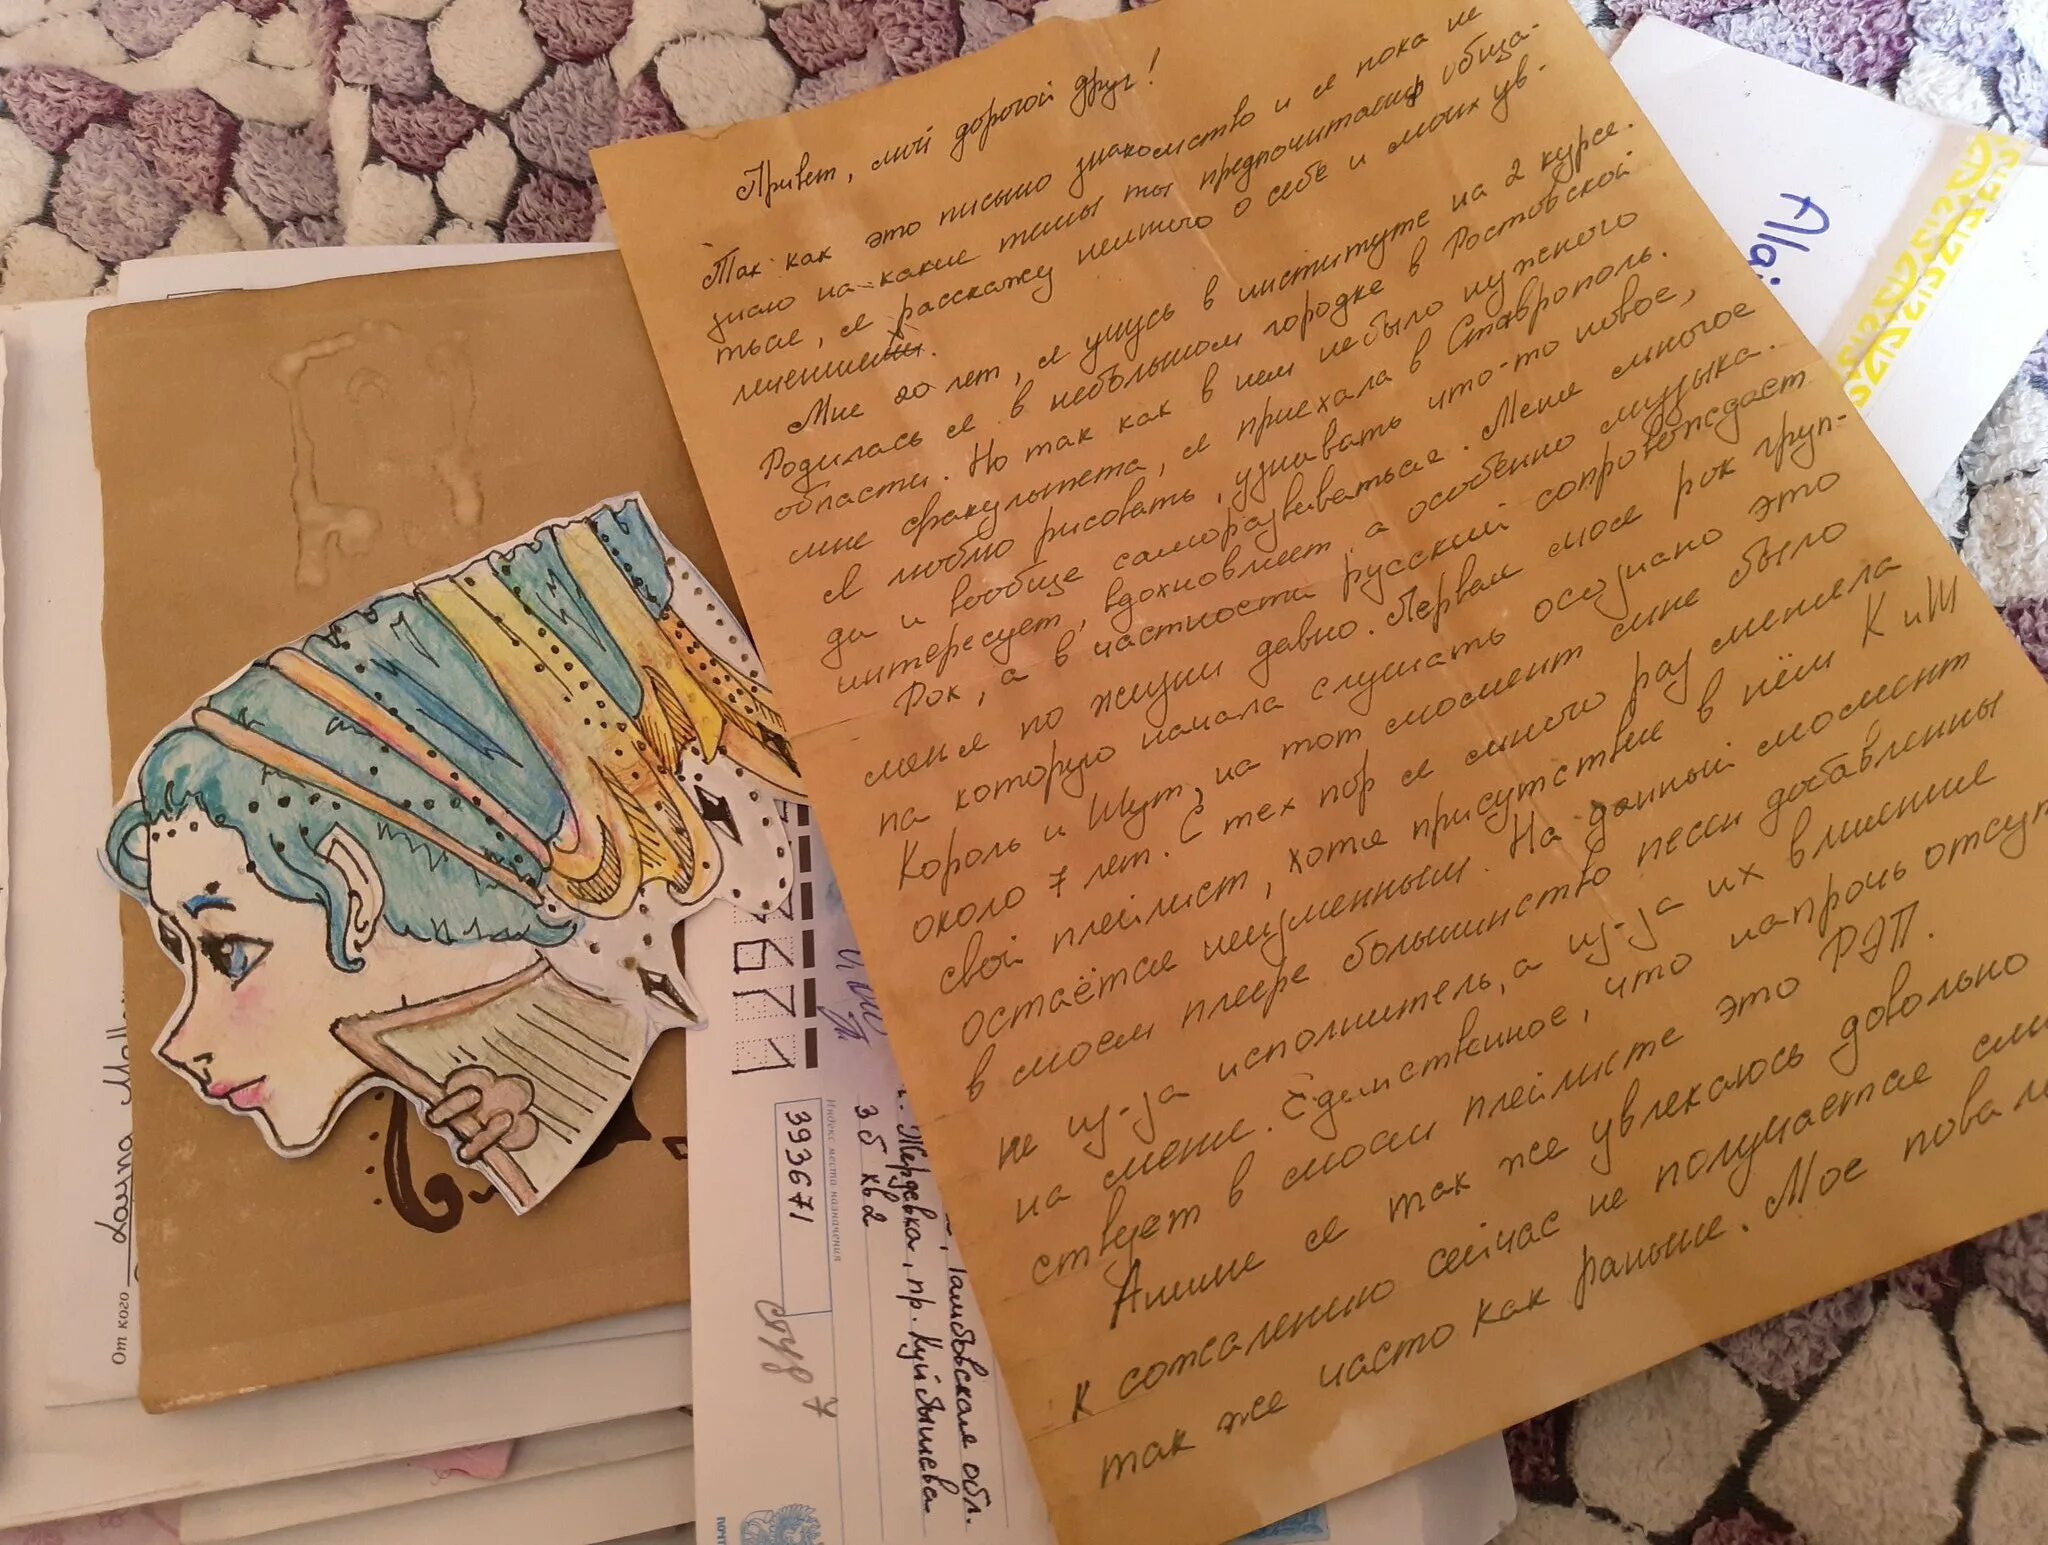 Привет, мой дорогой друг!
Так как это письмо знакомство и я пока не
знаю на какие темы ты предпочитаешь обща-
ться, я расскажу немного о себе и моих ув-
лечениях.
Мне 20 лет, я учусь в институте на 2 курсе.
Родилась я в небольшом городке в Ростовской
области. Но так как в нем не было нужного
мне факультета, я приехала в Ставрополь.
Я люблю рисовать, узнавать что-то новое,
да и вообще саморазвиваться. Меня многое
интересует, вдохновляет, а особенно музыка.
Рок, а в частности русский сопровождает
меня по жизни давно. Первая моя рок груп-
па которую начала слушать осознано это
Король и Шут, на тот момент мне было
около 7 лет. С тех пор я много раз меняла
свой плейлист, хотя присутствие в нём КиШ
остаётся неизменным. На данный момент
в моем плеере большинство песен добавленны
не из-за исполнитель, а из-за их влияние
на меня. Единственное, что напрочь отсут
ствует в моем плейлисте это РЭП.
Аниме я так же увлекаюсь довольно
к сожалению сейчас не получается
так же часто как раньше. Мое
Alai
От кого
Индекс места назначения
393671
обл.
г. Жердевка, пр. Куйбышева
3б кв 2